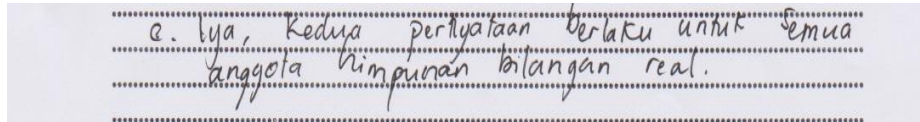 c. Iya, Kedua pernyataan berlaku untuk semua
anggota himpunan bilangan real.